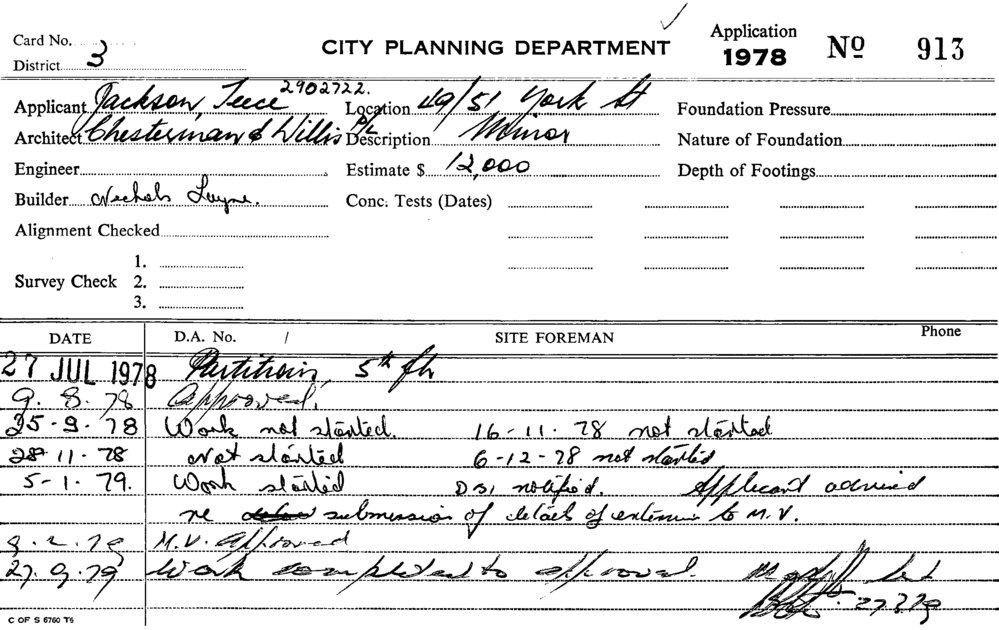 Card No. 3
District
CITY PLANNING DEPARTMENT
Application
1978 No 913
Applicant Jackson, Teece 2902722.
Architect Chesterman & Willis P/L
Engineer
Builder Nichols
Alignment Checked
Survey Check 1.
2.
3.
Location 49/51 York St
Description Minor
Estimate $ 12,000
Conc. Tests (Dates)
Foundation Pressure
Nature of Foundation
Depth of Footings
DATE D.A. No. / SITE FOREMAN Phone
27 JUL 1978 Partitions, 5th flr
9. 8. 78 Approved.
25-9-78 Work not started. 16-11-78 not started
28-11-78 Not started 6-12-78 not started
5-1-79. Work started DSI notified. Applicant advised
re submission of details of to M.V.
9.2.79 M.V. Approved
27.9.79 Work completed to approval.
27.3.79
C OF S 6760 T6